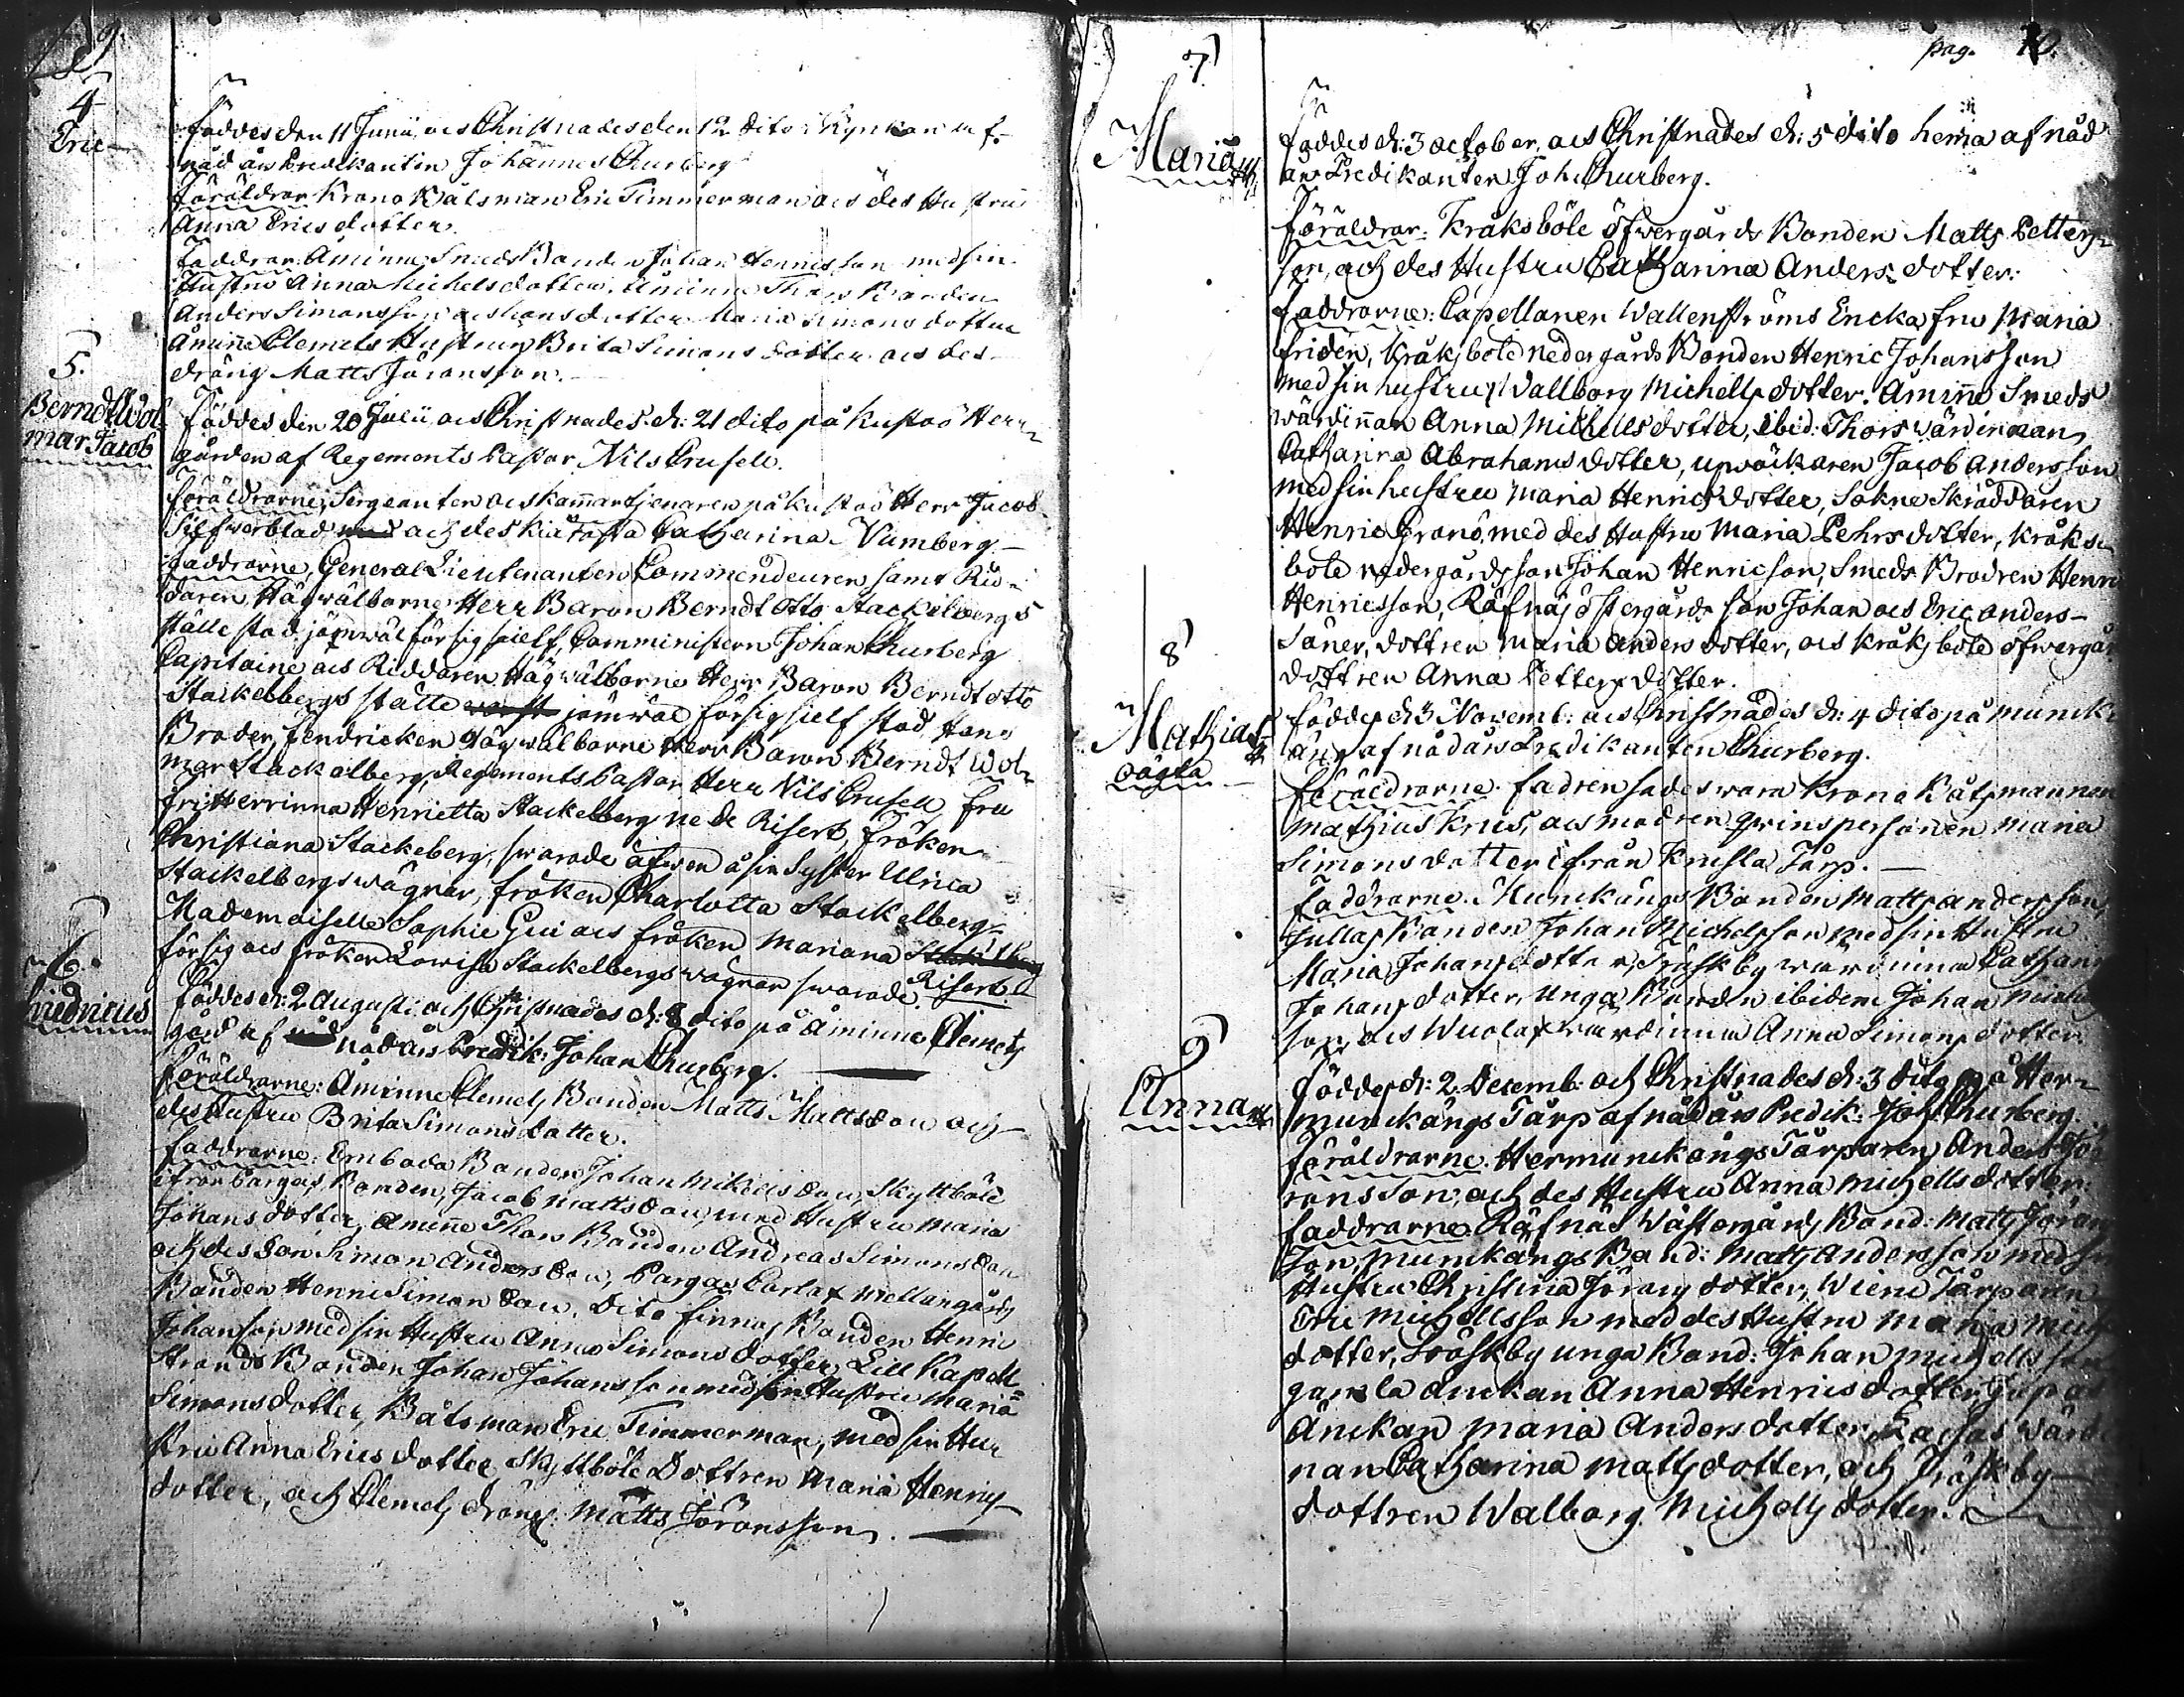 9.
4
Eric
föddes den 11 Junii och Christnades den 12 dito i Kyrkan af
nåd års Predikanten Johannes Churberg
föräldrar Krono Båtsman Eric Timmerman och des Hustru
Anna Ericsdotter.
faddrar Åminne Smeds Bonden Johan Henricsson med sin
Hustru Anna Michelsdotter, Åminne Thors Bonden
Anders Simonsson och hans dotter Maria Simonsdotter
Åminne Clemets Hustrun Brita Simons dotter och des
dräng Matts Jöransson.
5.
Berndt Wol
mar Jacob
föddes den 20 Julii och Christnades d: 21 dito på Kustoö Herr
gården af Regements Pastor Nils Crusell.
föräldrarne, Sergeanten och Kammartjenaren på Kustoö Herr Jacob
Silfwerblad och des Kiära fru Catharina Numberg
faddrarne, General Lieutenanten Commendeuren samt Rid-
daren Högwälborne Herr Baron Berndt Otto Stackelbergs
ställe stod jämwäl för sig sielf, Comministern Johan Churberg
Capitaine och Riddaren Högwälborne Herr Baron Berndt Otto
Stackelbergs ställe jämwäl för sig sielf stod Hans
Broder, fendricken Högwälborne Herr Baron Berndt Wol-
mar Stackelberg, Regements Pastor Herr Nils Crusell, fru
friHerrinna Henrietta Stackelberg ne de Risert, fröken
Christiana Stackeberg, swarade äfwen å sin Syster Ulrica
Stackelbergs wägnar, fröken Charlotta Stackelberg
Mademoiselle Sophie och fröken Mariana Risert
för sig och fröken Lowisa Stackelbergs wägnar swarade.
6.
Friedricus
föddes d: 2 Augusti och Christnades d: 8 dito på Åminne Clemets
gård af nåd års Predik: Johan Churberg.
föräldrarne: Åminne Clemets Bonden Matts Mattsson och
des Hustru Brita Simonsdotter.
faddrarne: Emboda Bonden Johan Mikelsson, Skyttböle
ifrån Pargas, Bonden Jacob Mattsson med Hustru Maria
Johansdotter, Åminne Thors Bonden Andreas Simonsson
och des Son Simon Andersson, Pargas Parlax Mellangårds
Bonden Henric Simonsson, dito finnas Bonden Henric
Johansson med sin Hustru Anna Simonsdotter, Lill Kapell
Strands Bonden Johan Johansson med sin Hustru Maria
Simonsdotter, Båtsman Eric Timmerman, med sin Hu
stru Anna Ericsdotter, Skyttböle Dottren Maria Henrics
dotter, och Clemets dräng Matts Jöransson.
pag. 10.
7
Maria
föddes d: 3 october, och Christnades d: 5 dito hema af nåd
års Predikanten Joh: Churberg.
föräldrar: Kråksböle öfwergårds Bonden Matts Petters
son, och des Hustru Catharina Anders dotter.
faddrarne: Capellanen Wallenströms Encka fru Maria
friden, Kråksbole nedergårds Bonden Henric Johansson
med sin hustru Wallborg Michells dotter. Åminne Smeds
wärdinnan Anna Michellsdotter, ibid: Thors wärdinnan
Catharina Abrahams dotter, upwäckaren Jacob Andersson
med sin hustru Maria Henrics dotter, Sokne Skräddaren
Henric Granö, med des Hustru Maria Pehrs dotter, Kråks
bole nedergårds son Johan Henricson, Smeds Brodren Henric
Henricsson, Räfnäs östergårds son Johan och Eric Anders-
söner, dottren Maria Anders dotter, och Kråksbole öfwergårds
dottren Anna Petters dotter.
8
Mathias
oägta
föddes d: 3 Novemb: och Christnades d: 4 dito på Munck
äng af nåd års Predikanten Churberg.
föräldrarne. fadren sades wara Krono Båtsmannen
Mathias Krus, och modren qwinspersonen Maria
Simonsdotter ifrån Krusla Tårp.
faddrarne. Munckängs Bonden Matts Andersson,
Jullas Bonden Johan Michelsson med sin Hustru
Maria Johansdotter, Träskby wärdinna Catharina
Johansdotter, unga Bonden ibidem Johan Michels
son, och Wuolax wärdinna Anna Simons dotter.
9
Anna
föddes d: 2 Decemb: och Christnades d: 3 dito på Her-
munckängs Tårp af nåd års Predik: Joh: Churberg.
föräldrarne. Hermunckängs Tårparen Anders Jö
ransson, och des Hustru Anna Michellsdotter.
faddrarne. Räfnäs Wästergårds Bond: Matts Jörans
son, Munckängs Bond: Matts Andersson med sin
Hustru Christina Jörans dotter, Wiena Tårparen
Eric Michellsson med des Hustru Maria Mich
dotter, Träskby unga Bond: Johan Michellsson
gamla Änckan Anna Henricsdotter,
Änckan Maria Andersdotter, wärdin
nan Catharina Mattsdotter, och Träskby
dottren Walborg Michells dotter.